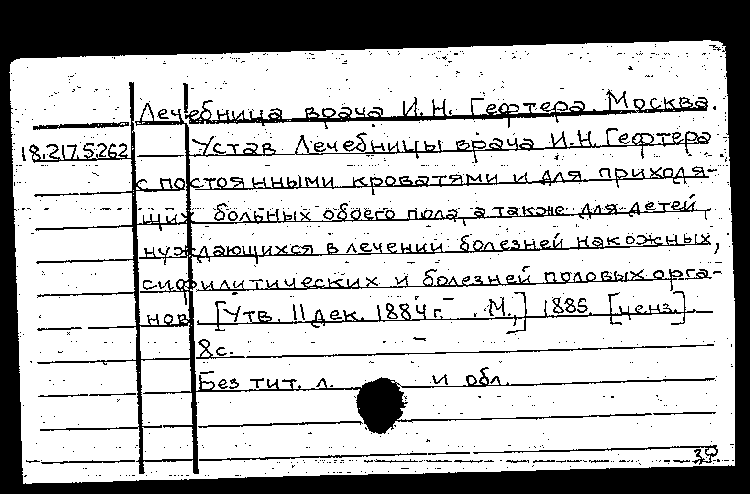 Лечебница врача И.Н. Гефтера. Москва.
18.217.5.262 Устав Лечебницы врача И.Н. Гефтера
с постоянными кроватями и для приходя-
щих больных обоего пола, а также для детей,
нуждающихся в лечении болезней накожных,
сифилитических и болезней половых орга-
нов. [Утв. 11 дек. 1884 г. М.,] 1885 [ценз.].
8с.
Без тит. л. и обл.